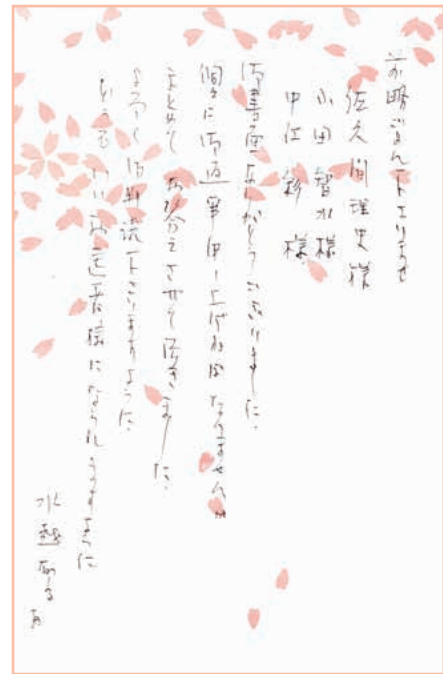 前略ごめん下さいませ
佐久間理史様
小田智水様
中江彩様
御書面ありがとうございました.
個々に御返事申し上げねばなりませんが
まとめて お答えさせて頂きました.
よろしく御判読下さいますように.
どうぞ いいお医者様になられますように
水越